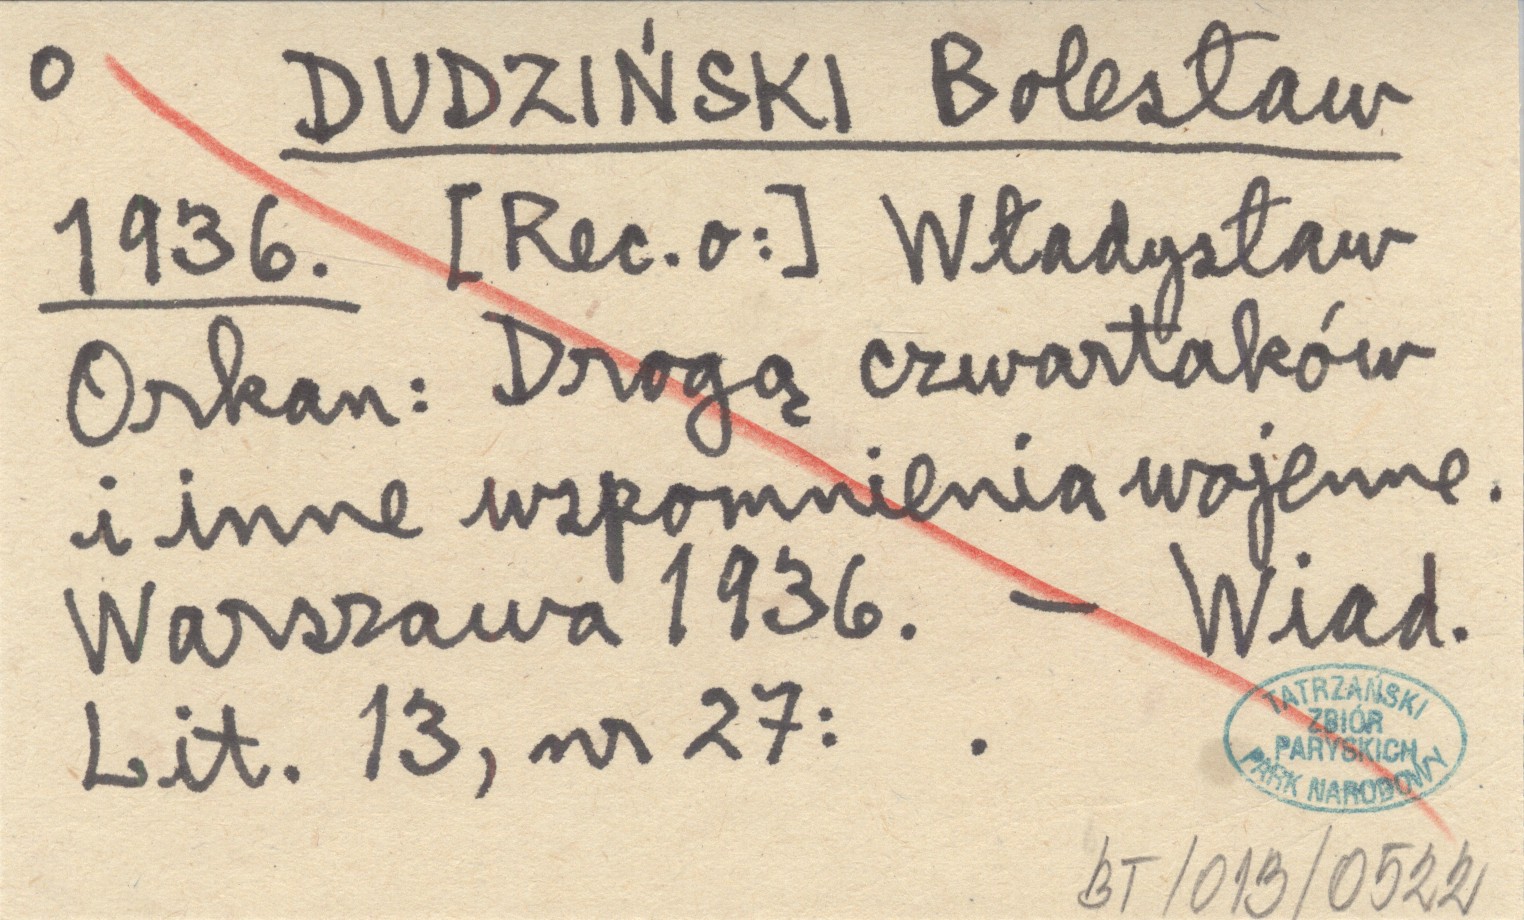 o DUDZIŃSKI Bolesław
1936. [Rec. o:] Władysław
Orkan: Drogą czwartaków
i inne wspomnienia wojenne.
Warszawa 1936. — Wiad.
Lit. 13, nr 27: .
TATRZAŃSKI
ZBIÓR
PARYSKICH
PARK NARODOWY
BT/013/0522